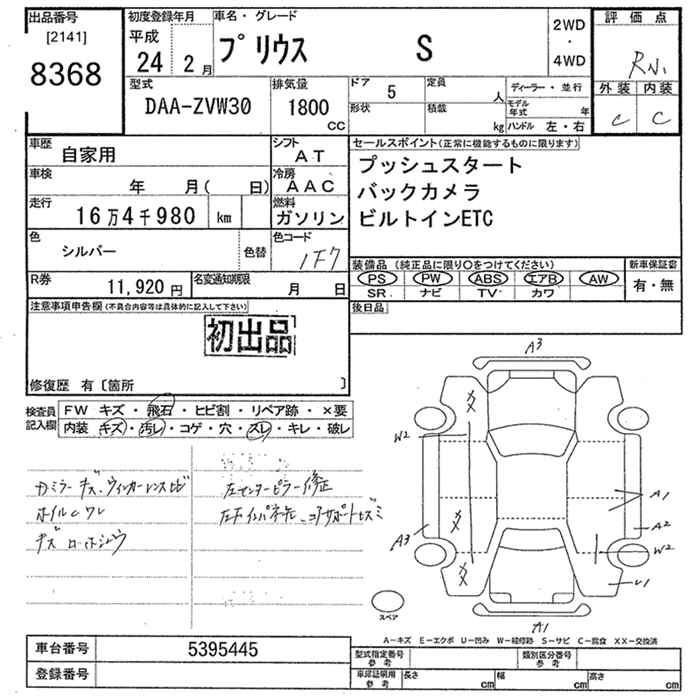 出品番号
[2141]
8368
初度登録年月
平成
24 2月
車名・グレード
プリウス S
2WD
・
4WD
評価点
R
外装 内装
C C
型式
DAA-ZVW30
排気量
1800
CC
ドア
5
定員
人
形状
積載
kg
ディーラー・並行
モデル
年式 年
ハンドル 左・右
車歴
自家用
シフト
AT
車検
年 月( 日)
冷房
AAC
走行
16万4千980 km
燃料
ガソリン
色
シルバー
色替
色コード
1F7
R券
11,920円
名変通知期限
月 日
セールスポイント(正常に機能するものに限ります)
プッシュスタート
バックカメラ
ビルトインETC
装備品 (純正品に限り○をつけてください)
PS PW ABS エアB AW
SR ナビ TV カワ
新車保証書
有・無
後日品
注意事項申告欄(不具合内容等は具体的に記入して下さい)
初出品
修復歴 有〔箇所 〕
検査員
記入欄
FW キズ・飛石・ヒビ割・リペア跡・×要
内装 キズ・汚レ・コゲ・穴・スレ・キレ・破レ
ホイルC
左センターピラー修正
A3
W2
A1
A2
A3
W2
U1
A1
スペア
A-キズ E-エクボ U-凹み W-補修跡 S-サビ C-腐食 XX-交換済
車台番号
5395445
登録番号
型式指定番号
参考
類別区分番号
参考
車庫証明用
参考
長さ cm
幅 cm
高さ cm